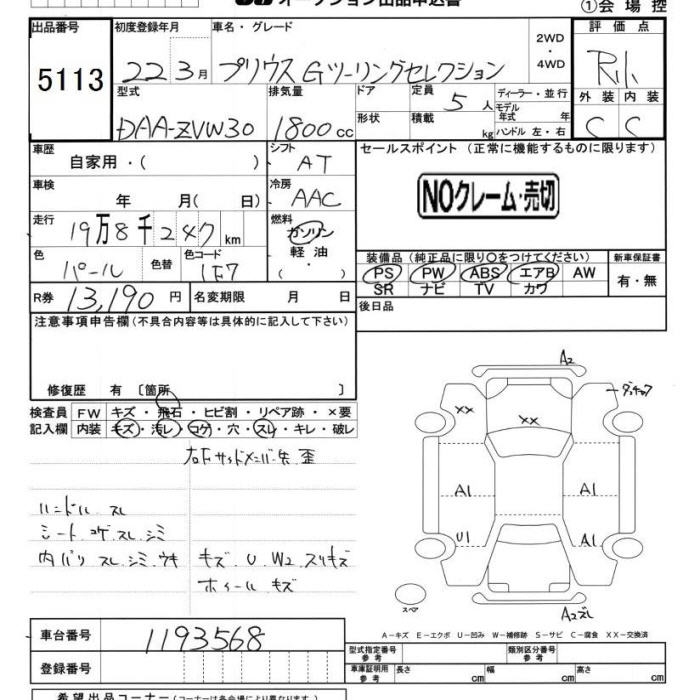 ①会場控
出品番号 初度登録年月 車名・グレード 2WD・4WD 評価点
5113 22 3月 プリウス Gツーリングセレクション
型式 排気量 ドア 定員 5人 ディーラー・並行 外装 内装
DAA-ZVW30 1800cc 形状 積載 kg モデル年式 年 ハンドル 左・右 C C
車歴 自家用・( ) シフト AT セールスポイント (正常に機能するものに限ります)
車検 年 月( 日) 冷房 AAC NOクレーム・売切
走行 19万8千247km 燃料 ガソリン 軽油 ・( )
色 パール 色替 色コード 1F7 装備品 (純正品に限り○をつけてください) 新車保証書
PS PW ABS エアB AW 有・無
SR ナビ TV カワ
R券 13,190円 名変期限 月 日 後日品
注意事項申告欄(不具合内容等は具体的に記入して下さい)
修復歴 有 〔箇所 〕
検査員記入欄 FW キズ・飛石・ヒビ割・リペア跡・×要
内装 キズ・汚レ・コゲ・穴・スレ・キレ・破レ
右Fサイドメンバー先歪
ハンドル スレ
シート コゲ.スレ.シミ
内バリ スレ.シミ.ウキ キズ.U.W2.スリキズ
ホイール キズ
A2
XX XX
A1 A1
U1 A1
スペア
A2スレ
A-キズ E-エクボ U-凹み W-補修跡 S-サビ C-腐食 XX-交換済
車台番号 1193568
型式指定番号 参考 類別区分番号 参考
登録番号 車庫証明用 参考 長さ cm 幅 cm 高さ cm
希望出品コーナー(コーナーは各会場により異なります)